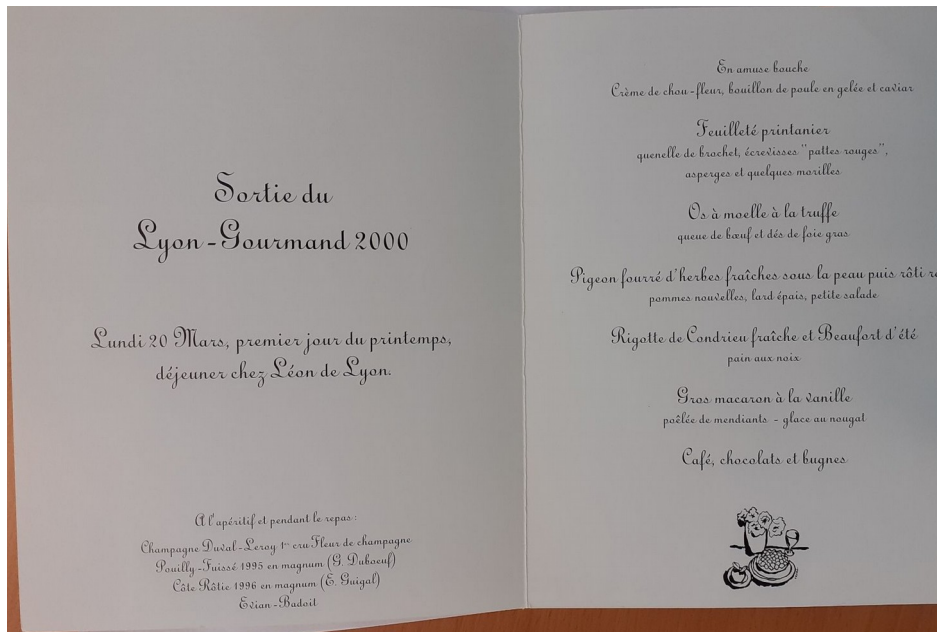 Sortie du
Lyon-Gourmand 2000
Lundi 20 Mars, premier jour du printemps,
déjeuner chez Léon de Lyon.
A l'apéritif et pendant le repas :
Champagne Duval-Leroy 1er cru Fleur de champagne
Pouilly-Fuissé 1995 en magnum (G. Duboeuf)
Côte Rôtie 1996 en magnum (E. Guigal)
Evian-Badoit
En amuse bouche
Crème de chou-fleur, bouillon de poule en gelée et caviar
Feuilleté printanier
quenelle de brochet, écrevisses "pattes rouges",
asperges et quelques morilles
Os à moelle à la truffe
queue de bœuf et dés de foie gras
Pigeon fourré d'herbes fraîches sous la peau puis rôti
pommes nouvelles, lard épais, petite salade
Rigotte de Condrieu fraîche et Beaufort d'été
pain aux noix
Gros macaron à la vanille
poêlée de mendiants - glace au nougat
Café, chocolats et bugnes